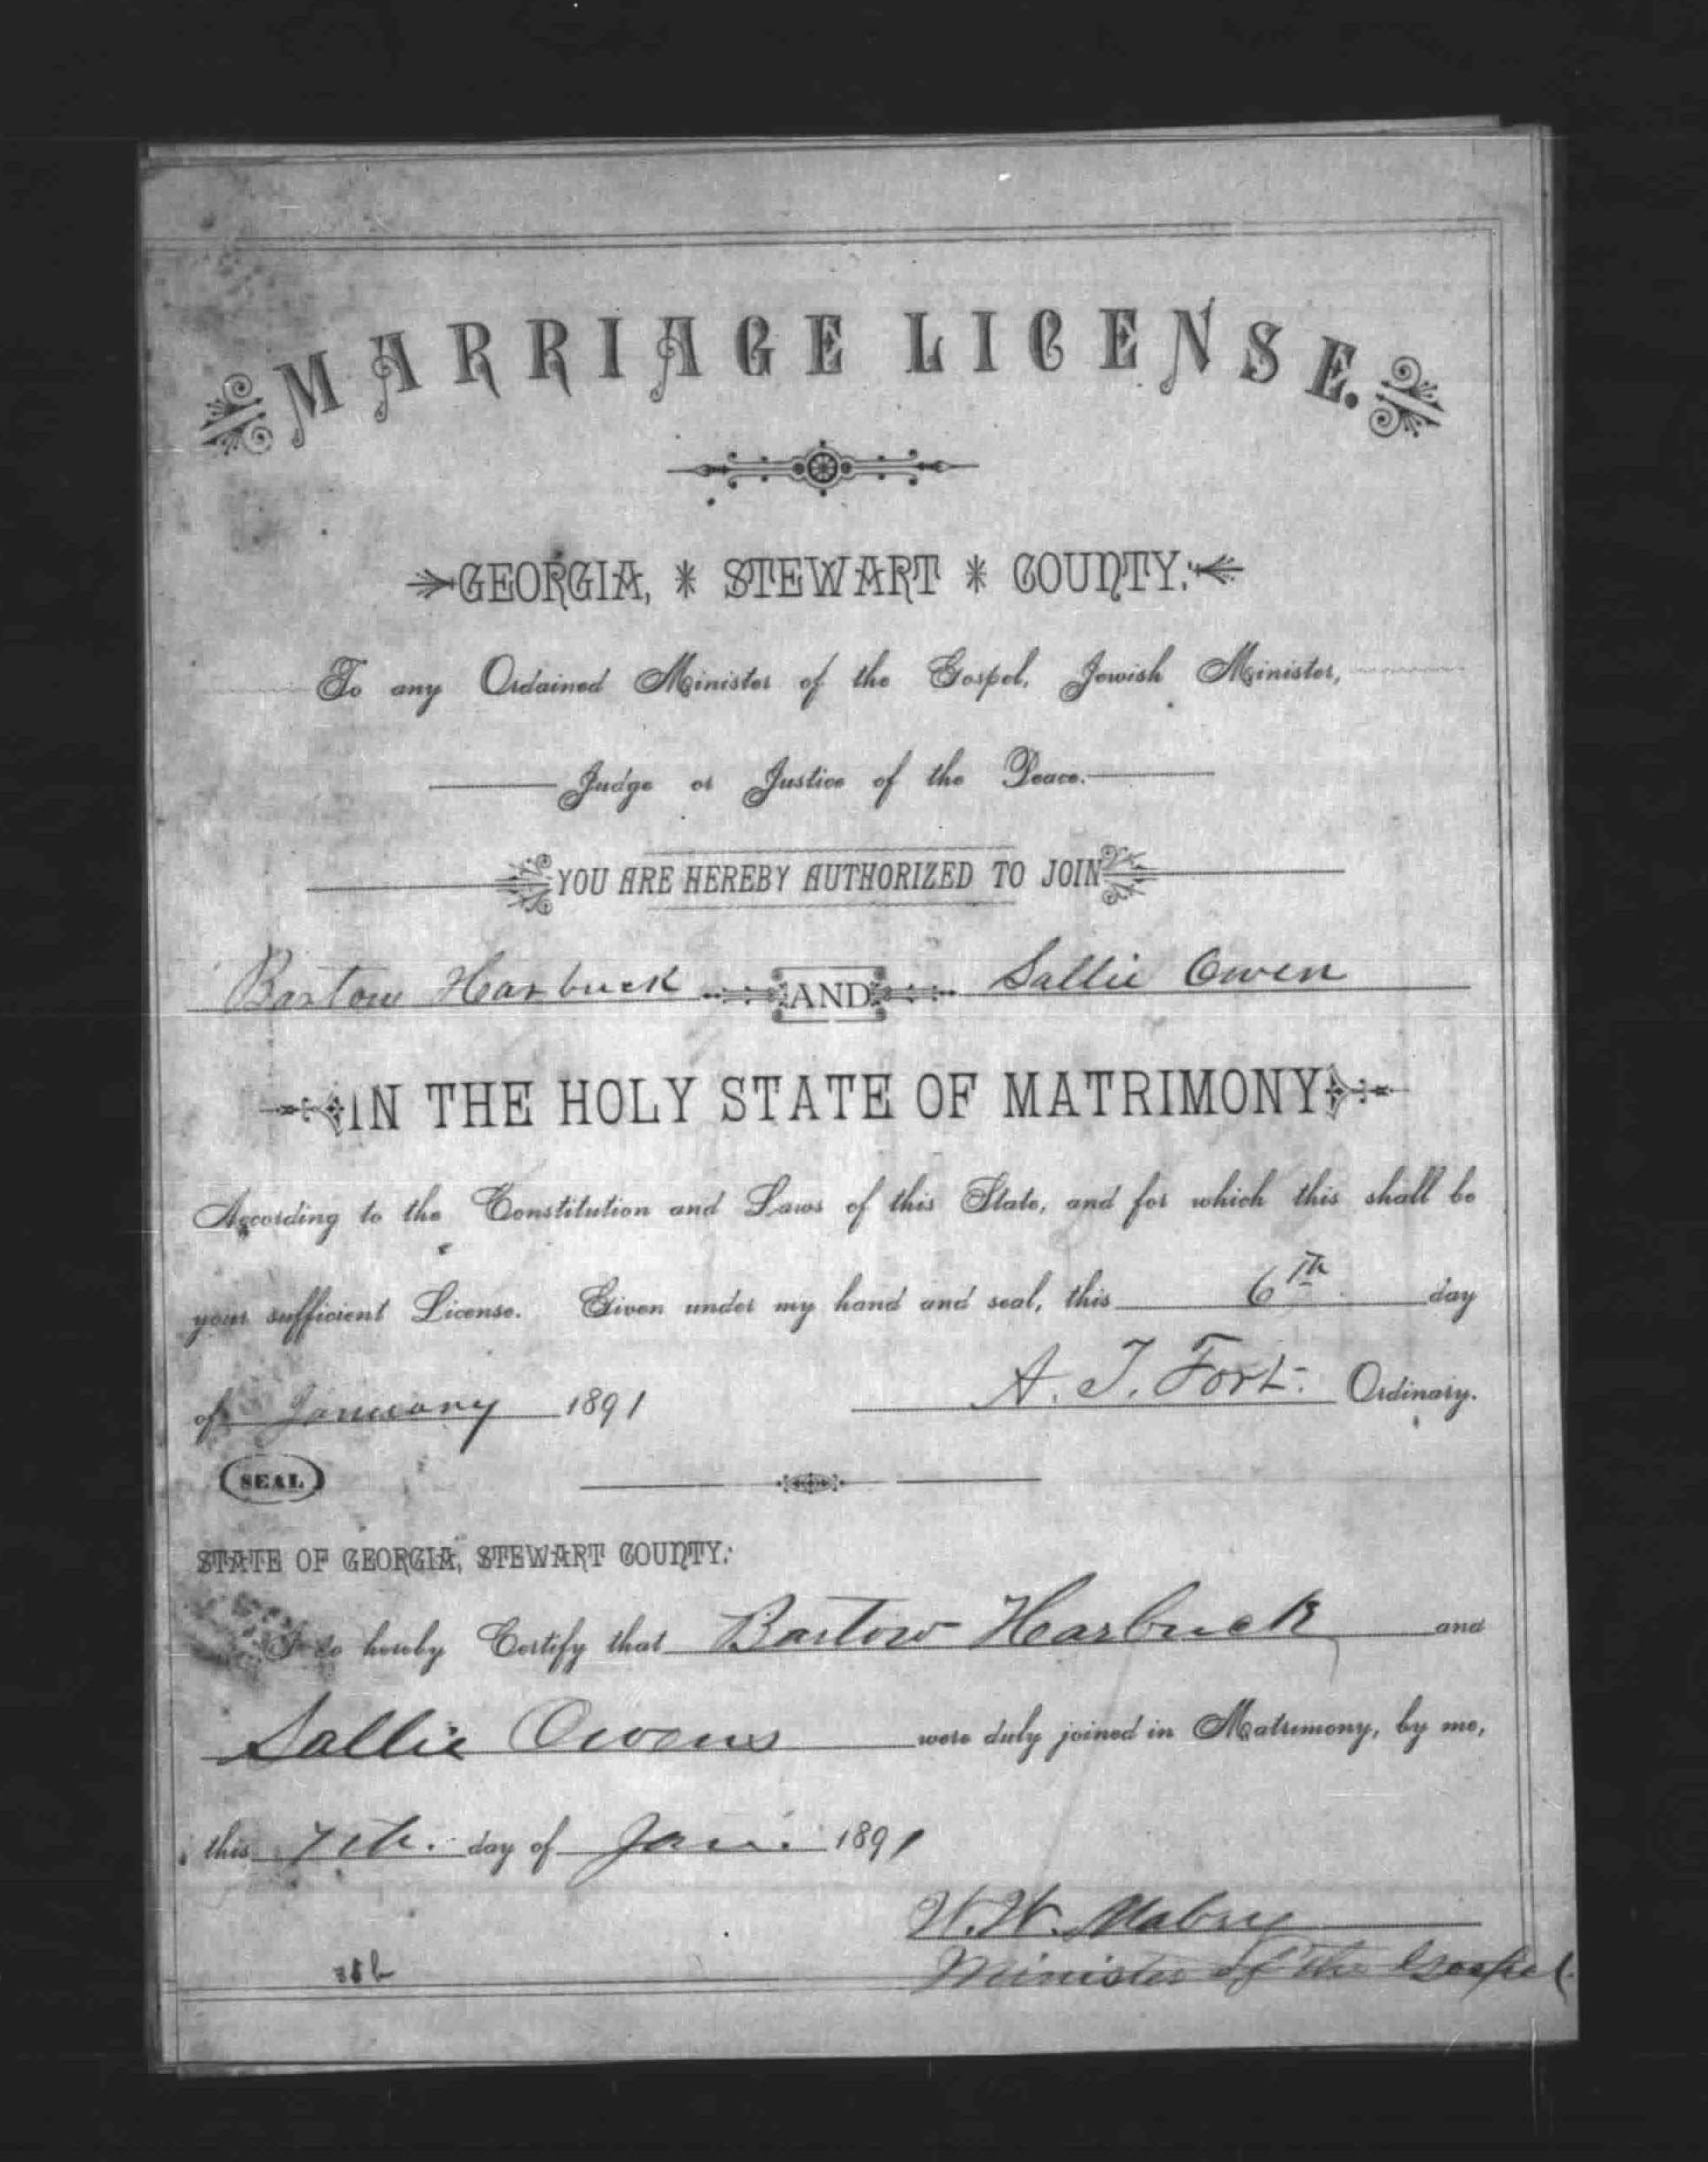 MARRIAGE LICENSE.
GEORGIA, * STEWART * COUNTY:
To any Ordained Minister of the Gospel, Jewish Minister,
Judge or Justice of the Peace.
YOU ARE HEREBY AUTHORIZED TO JOIN
Bartow Harbuck AND Sallie Owen
IN THE HOLY STATE OF MATRIMONY
According to the Constitution and Laws of this State, and for which this shall be
your sufficient License. Given under my hand and seal, this 6th day
of January 1891 A. T. Fort. Ordinary.
SEAL
STATE OF GEORGIA, STEWART COUNTY:
I do hereby Certify that Bartow Harbuck and
Sallie Owens were duly joined in Matrimony, by me,
this 7th. day of Jan. 1891
W. W. Mabry
Minister of the Gospel